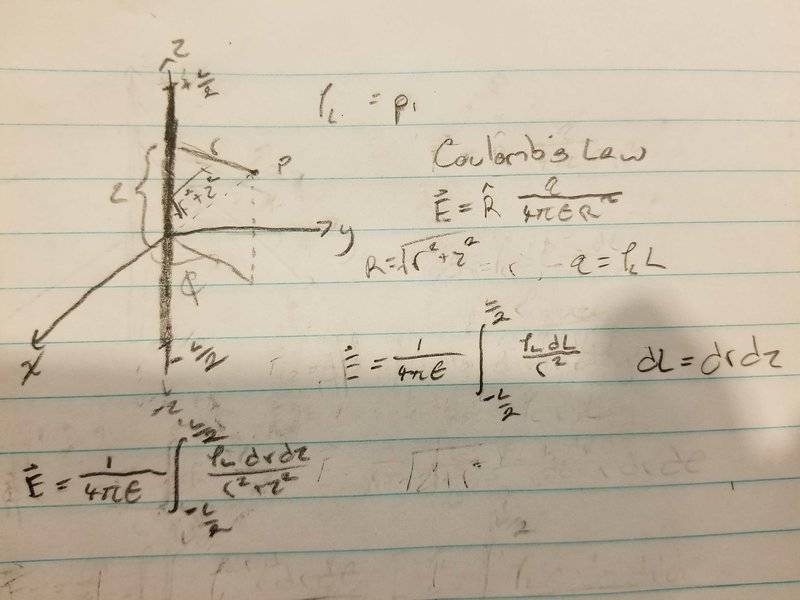 z
+L/2
ρ_L = ρ₁
r
P
Coulomb's Law
z
r²+z²
E⃗ = R̂ q/(4πεR²)
y
R = √(r²+z²)
q = ρ_L L
φ
x
-L/2
E⃗ = 1/(4πε) ∫_{-L/2}^{L/2} ρ_L dL/r²
dL = drdz
-z
E⃗ = 1/(4πε) ∫_{-L/2}^{L/2} ρ_L drdz/(r²+z²)